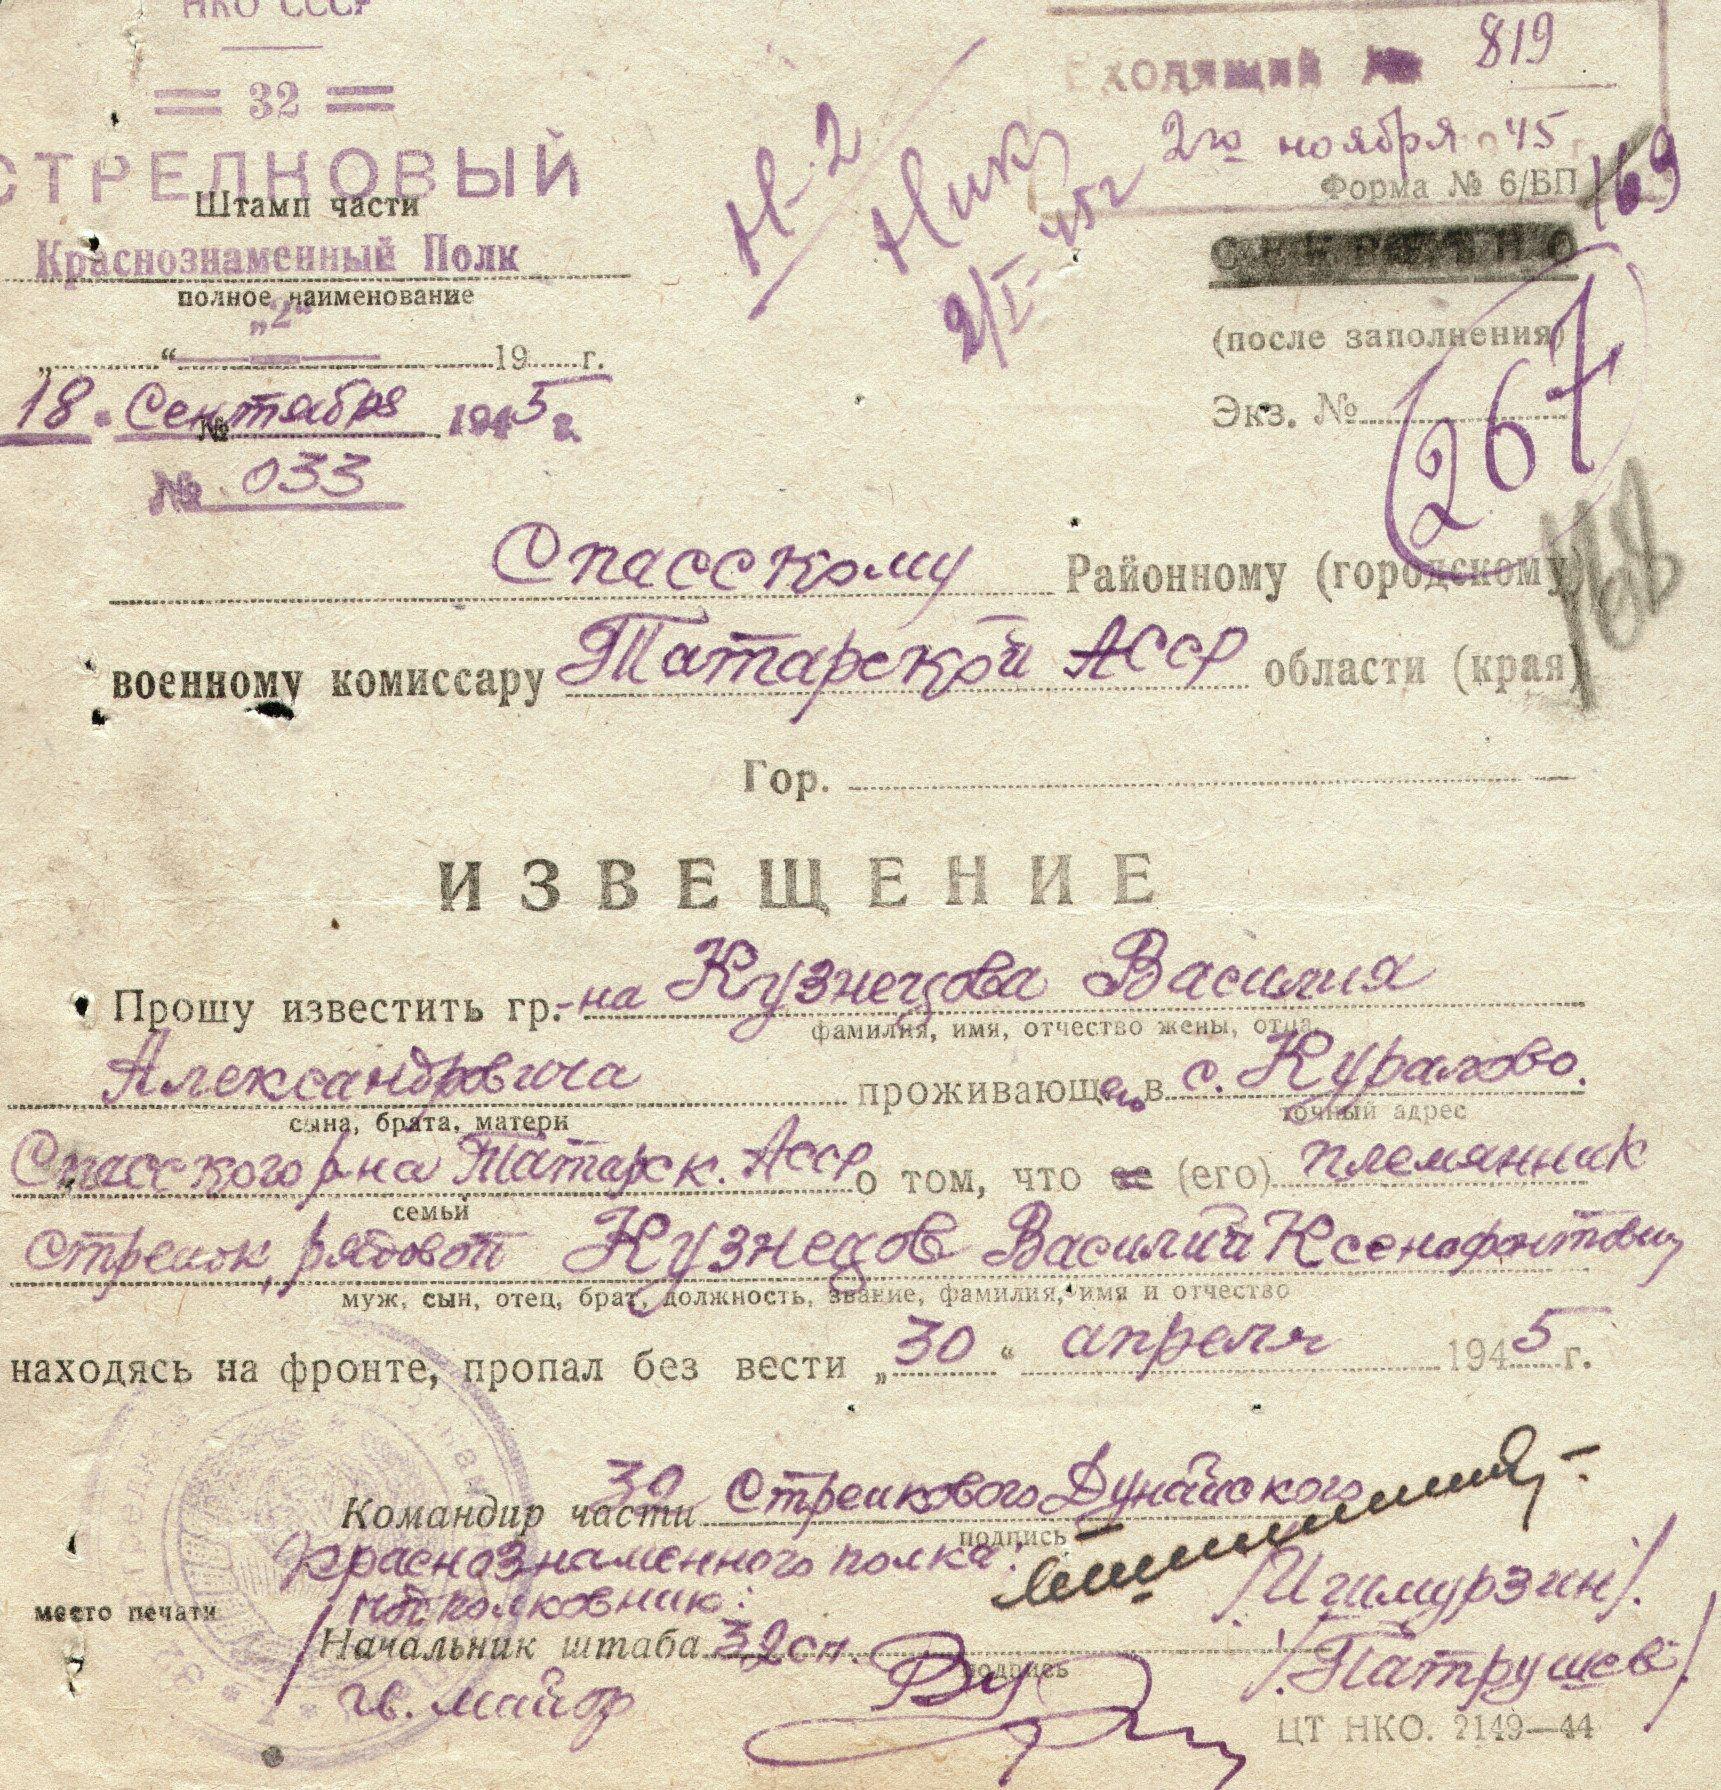 НКО СССР
32
СТРЕЛКОВЫЙ
Штамп части
Краснознаменный Полк
полное наименование
„2“
„ “ 19 г.
18. Сентября 1945 г.
№
№ 033
Входящий № 819
2го ноября 45 г.
Форма № 6/БП
169
Н-2
45г
СЕКРЕТНО
(после заполнения)
Экз. №
267
168
Спасскому Районному (городскому)
военному комиссару Татарской АССР области (края)
Гор.
ИЗВЕЩЕНИЕ
Прошу известить гр.-на Кузнецова Василия
фамилия, имя, отчество жены, отца,
Александровича проживающего в с. Куралово.
сына, брата, матери точный адрес
Спасского р-на Татарск. АССР о том, что ее (его) племянник
семьи
Стрелок, рядовой Кузнецов Василий Ксенофонтович
муж, сын, отец, брат, должность, звание, фамилия, имя и отчество
находясь на фронте, пропал без вести „30“ апреля 1945 г.
Командир части 32 Стрелкового Дунайского
подпись
Краснознаменного полка:
подполковник: /Игимурзин/.
место печати
Начальник штаба 32 сп. /Патрушев/
подпись
гв. майор
ЦТ НКО. 2149—44